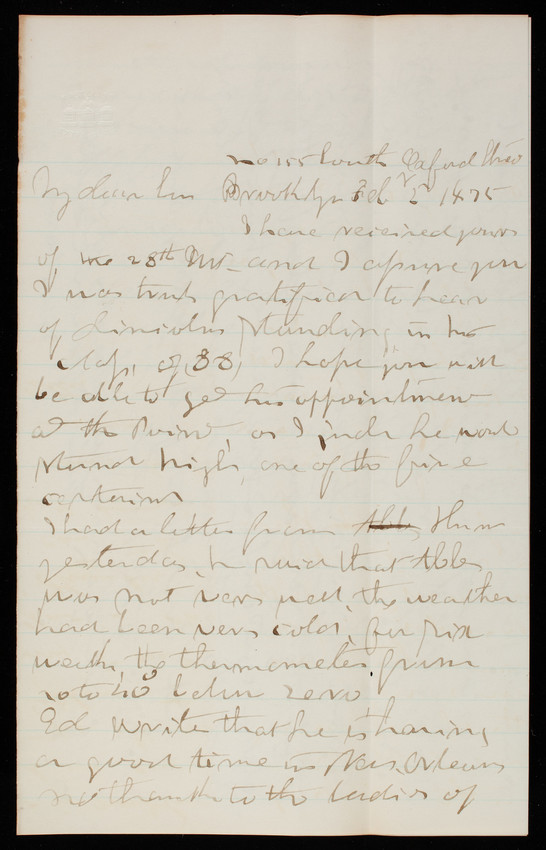 No 155 South Oxford Street
My dear Son Brooklyn Feb 2 1875
I have received yours
of the 28th Ult. and I assure you
I was truly gratified to hear
of Lincolns standing in his
class, of 88, I hope you will
be able to get his appointment
at the Point, as I judge he would
stand high, one of the five
certain
I had a letter from yesterday, he said that Abby
was not very well, the weather
had been very cold, for six
weeks, the thermometer from
10 to 40° below zero
Ed writes that he is having
a good time in New Orleans
no thanks to the ladies of